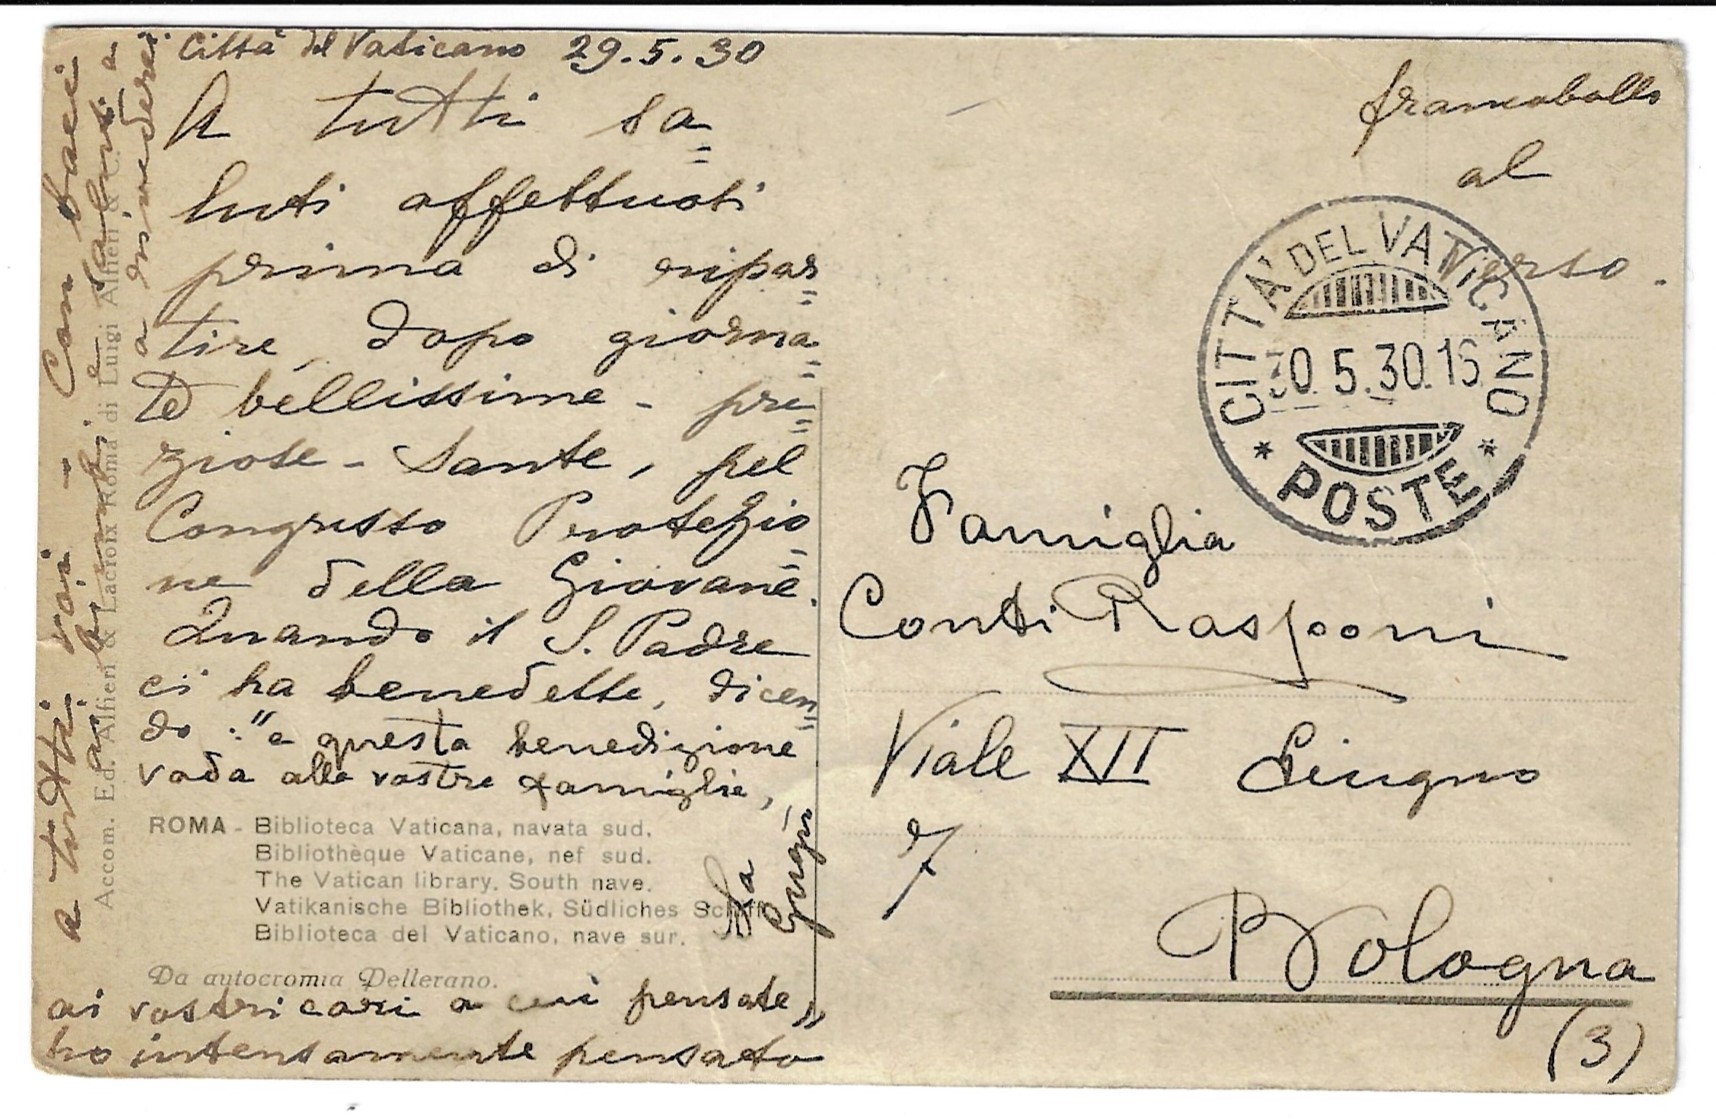 Città del Vaticano 29.5.30
A tutti sa=
luti affettuosi
prima di ripar=
tire, dopo giorna=
te bellissime - pre=
ziose - sante, pel
Congresso Protezio=
ne della Giovane.
Quando il S. Padre
ci ha benedette, dicen=
do: "e questa benedizione
vada alle vostre famiglie,
ai vostri cari a cui pensate"
ho intensamente pensato
a tutti voi - Con baci
ai bimbi e saluti a
a rivederci.
ROMA - Biblioteca Vaticana, navata sud.
Bibliothèque Vaticane, nef sud.
The Vatican library. South nave.
Vatikanische Bibliothek, Südliches Schiff.
Biblioteca del Vaticano, nave sur.
Da autocromia Pellerano.
Accom. Ed. Alfieri & Lacroix Roma di Luigi Alfieri & C.
francobollo
al
verso.
CITTA' DEL VATICANO
30.5.30.16
* POSTE *
Famiglia
Conti Rasponi
Viale XII Giugno
7
Bologna
(3)